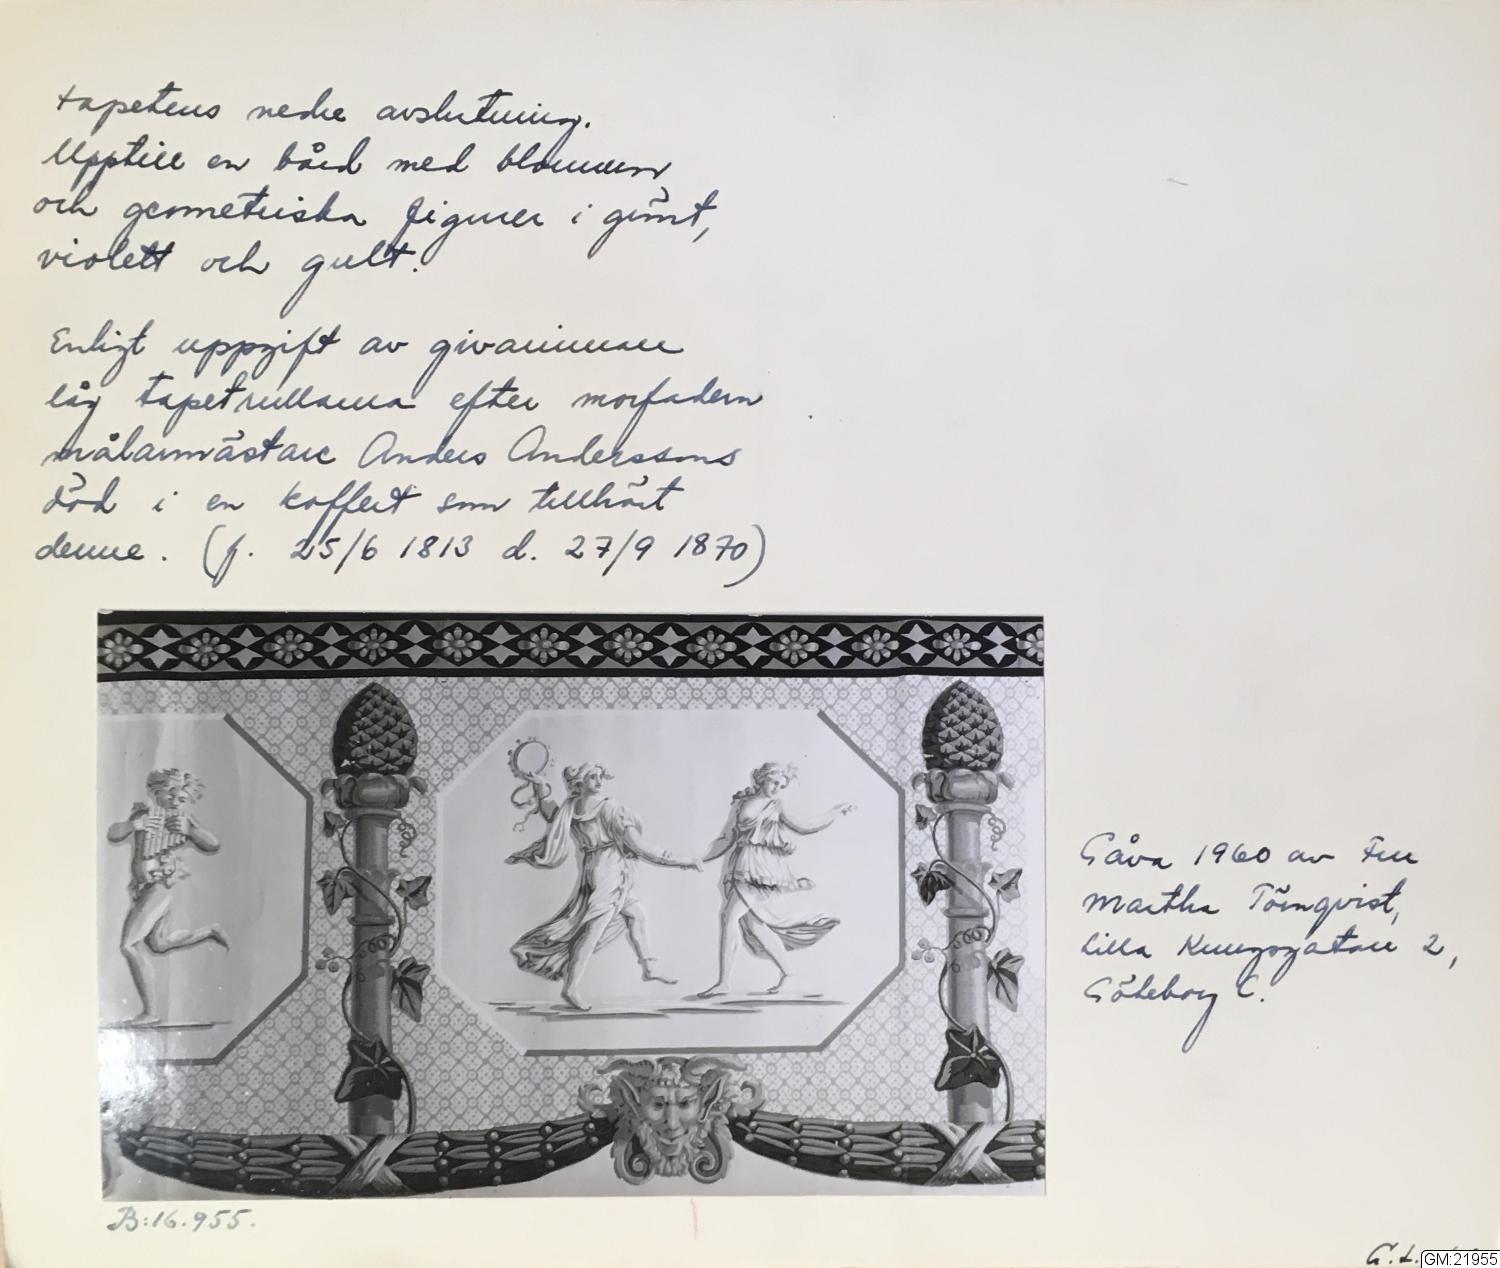 tapetens nedre avslutning.
Upptill en bård med blommor
och geometriska figurer i grönt,
violett och gult.
Enligt uppgift av givarinnan
låg tapetrullarna efter morfadern
målarmästare Anders Anderssons
död i en koffert som tillhört
denne. (f. 25/6 1813 d. 27/9 1870)
Gåva 1960 av Fru
Martha Törnqvist,
Lilla Kungsgatan 2,
Göteborg C.
B:16.955.
G.L.
GM:21955